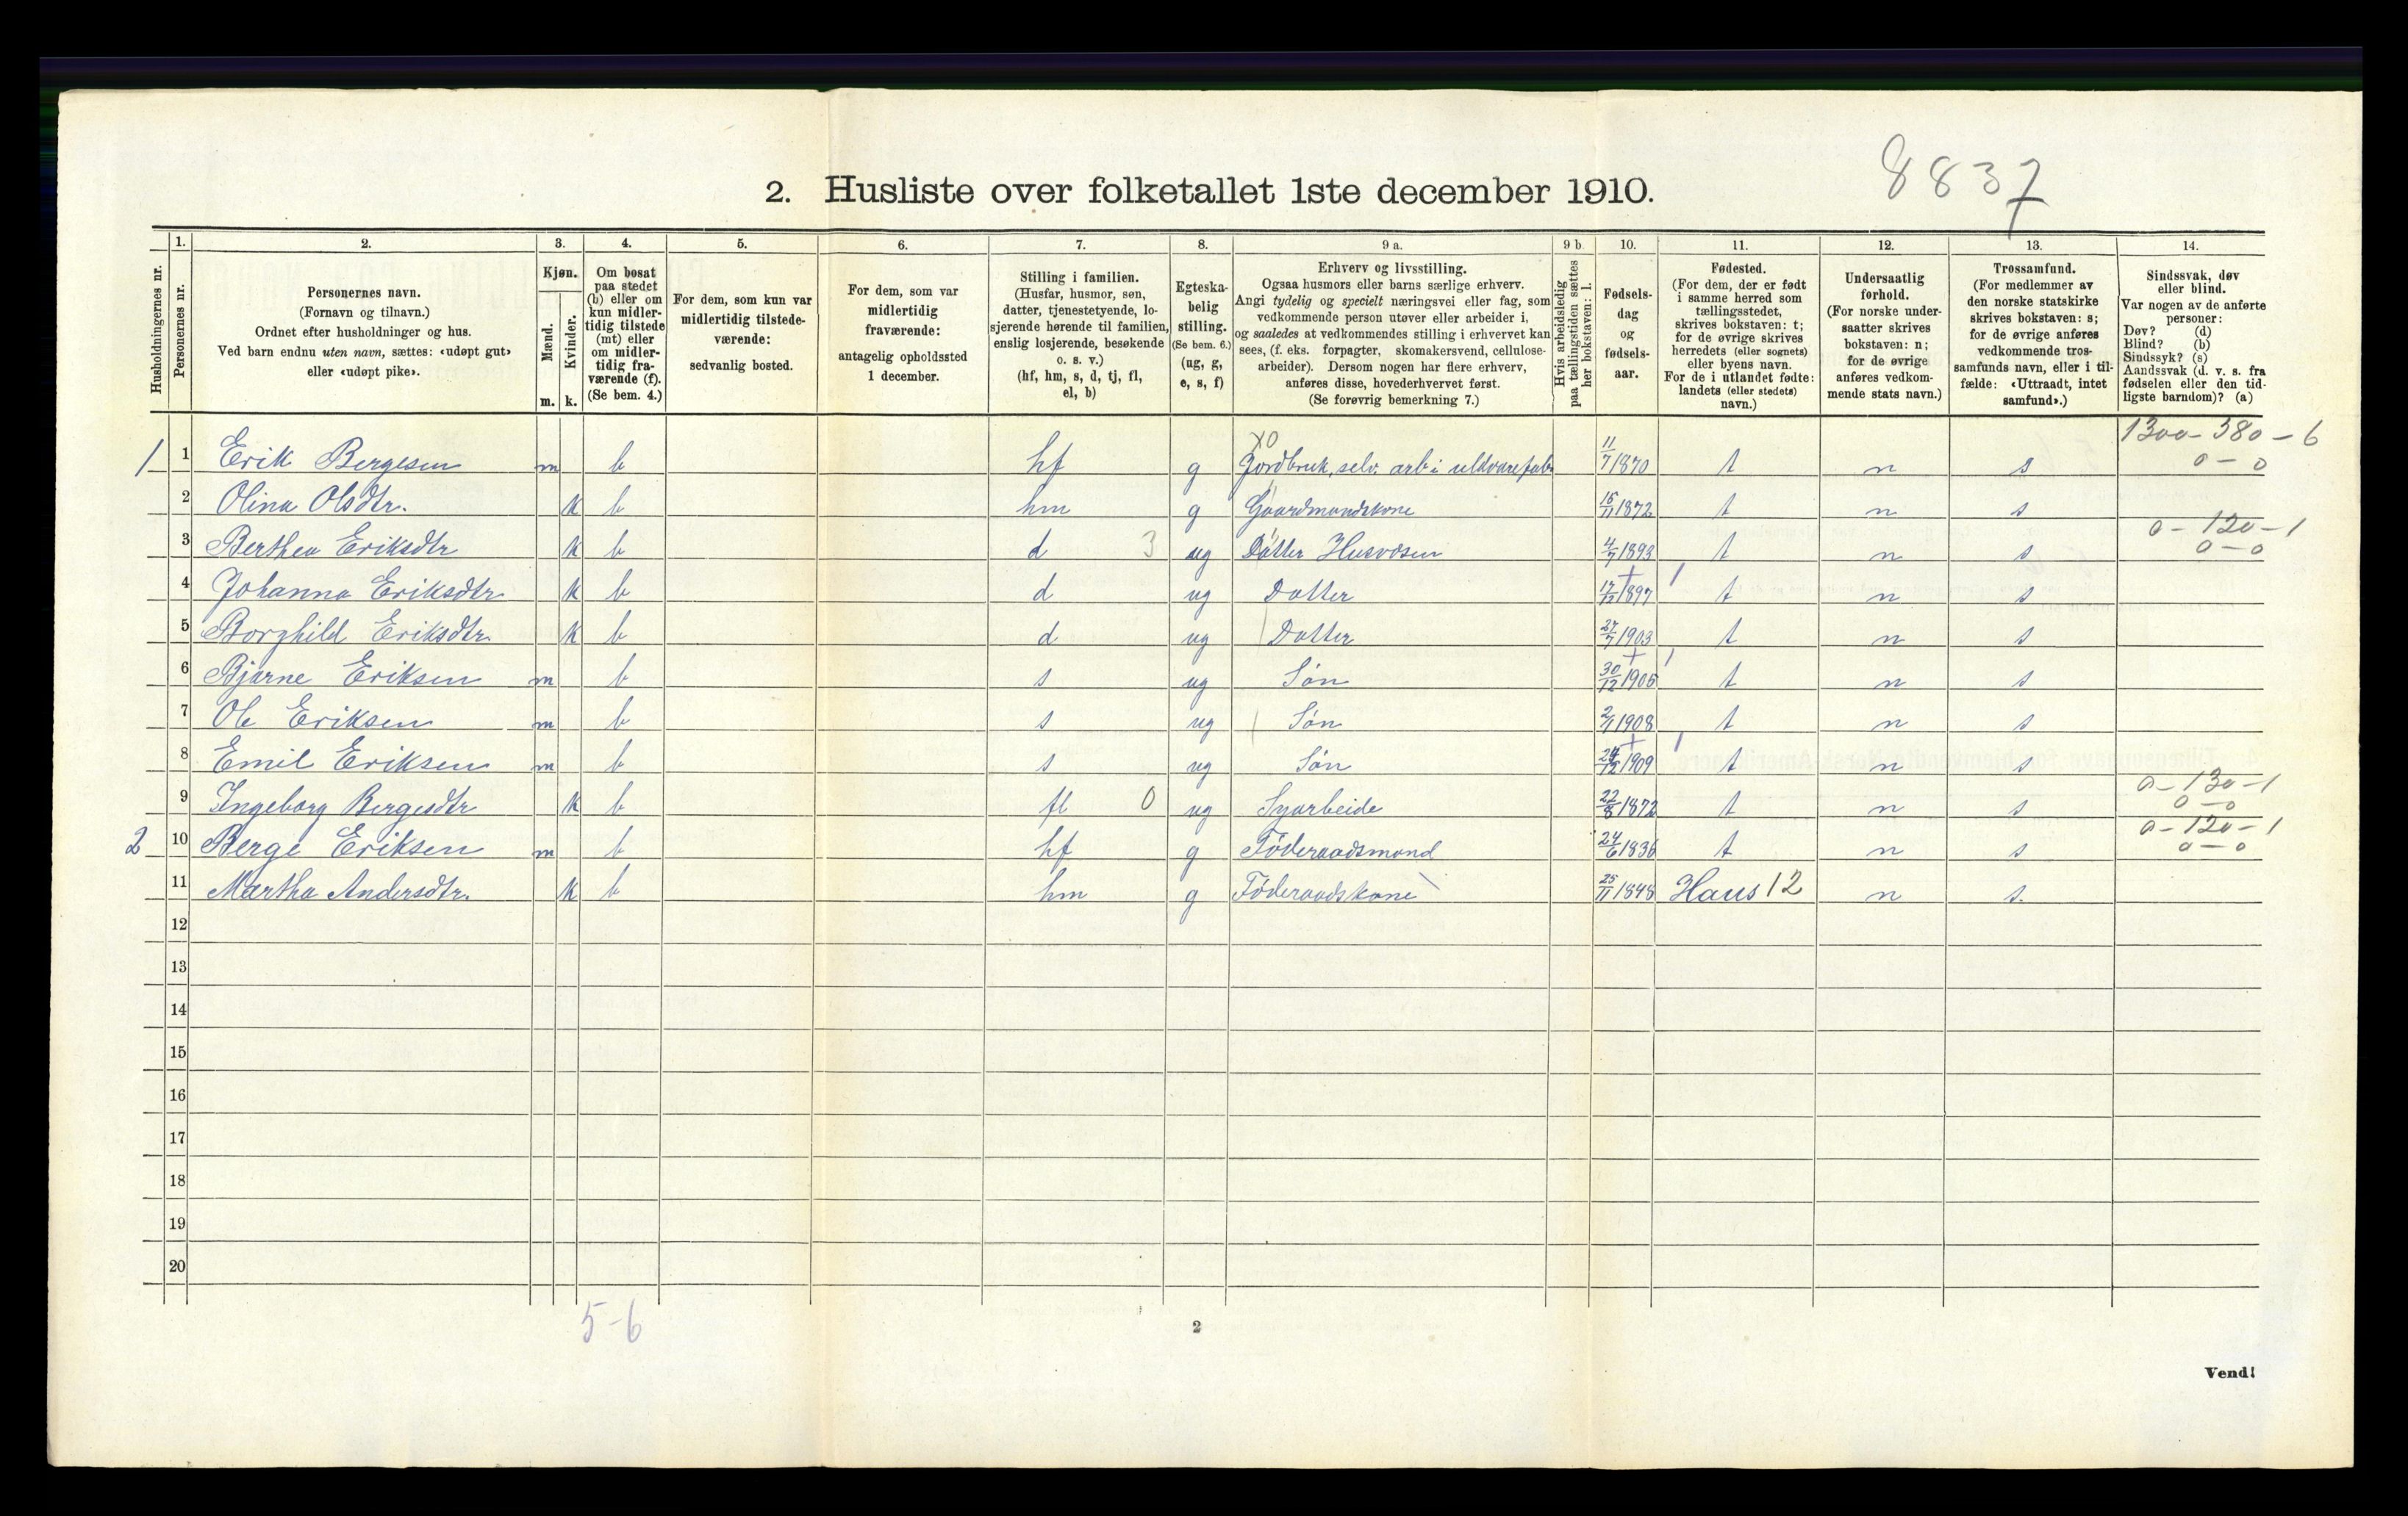 8837
2. Husliste over folketallet 1ste december 1910.
Husholdningernes nr.
1. 2. 3. 4. 5. 6. 7. 8. 9 a. 9 b. 10. 11. 12. 13. 14.
Personernes nr.
Personernes navn.
(Fornavn og tilnavn.)
Ordnet efter husholdninger og hus.
Ved barn endnu uten navn, sættes: «udøpt gut»
eller «udøpt pike».
Kjøn.
Mænd.
Kvinder.
m. k.
Om bosat
paa stedet
(b) eller om
kun midler-
tidig tilstede
(mt) eller
om midler-
tidig fra-
værende (f).
(Se bem. 4.)
For dem, som kun var
midlertidig tilstede-
værende:
sedvanlig bosted.
For dem, som var
midlertidig
fraværende:
antagelig opholdssted
1 december.
Stilling i familien.
(Husfar, husmor, søn,
datter, tjenestetyende, lo-
sjerende hørende til familien,
enslig losjerende, besøkende
o. s. v.)
(hf, hm, s, d, tj, fl,
el, b)
Egteska-
belig
stilling.
(Se bem. 6.)
(ug, g,
e, s, f)
Erhverv og livsstilling.
Ogsaa husmors eller barns særlige erhverv.
Angi tydelig og specielt næringsvei eller fag, som
vedkommende person utøver eller arbeider i,
og saaledes at vedkommendes stilling i erhvervet kan
sees, (f. eks. forpagter, skomakersvend, cellulose-
arbeider). Dersom nogen har flere erhverv,
anføres disse, hovederhvervet først.
(Se forøvrig bemerkning 7.)
Hvis arbeidsledig
paa tællingstiden sættes
her bokstaven: l.
Fødsels-
dag
og
fødsels-
aar.
Fødested.
(For dem, der er født
i samme herred som
tællingsstedet,
skrives bokstaven: t;
for de øvrige skrives
herredets (eller sognets)
eller byens navn.
For de i utlandet fødte:
landets (eller stedets)
navn.)
Undersaatlig
forhold.
(For norske under-
saatter skrives
bokstaven: n;
for de øvrige
anføres vedkom-
mende stats navn.)
Trossamfund.
(For medlemmer av
den norske statskirke
skrives bokstaven: s;
for de øvrige anføres
vedkommende tros-
samfunds navn, eller i til-
fælde: «Uttraadt, intet
samfund».)
Sindssvak, døv
eller blind.
Var nogen av de anførte
personer:
Døv? (d)
Blind? (b)
Sindssyk? (s)
Aandssvak (d. v. s. fra
fødselen eller den tid-
ligste barndom)? (a)
XO 1300-380-6
1 1 Erik Bergesen m b hf g Jordbruk, selv. arb i uldvarefabr 11/7 1870 t n s 0-0
2 Olina Olsdtr. k b hm g Gaardmandskone 15/11 1872 t n s
0-120-1
3 Berthea Eriksdtr k b d 3 ug Datter Husvæsen 4/7 1893 t n s 0-0
4 Johanna Eriksdtr k b d ug Datter 17/12 1897 t n s
5 Borghild Eriksdtr. k b d ug Datter 27/7 1903 t n s
6 Bjarne Eriksen m b s ug Søn 30/12 1905 t n s
7 Ole Eriksen m b s ug Søn 2/11 1908 t n s
8 Emil Eriksen m b s ug Søn 24/12 1909 t n s
0-130-1
9 Ingeborg Bergesdtr k b fl 0 ug Syarbeide 22/8 1872 t n s 0-0
0-120-1
2 10 Berge Eriksen m b hf g Føderaadsmand 24/6 1836 t n s 0-0
11 Martha Andersdtr. k b hm g Føderaadskone 25/11 1848 Haus 12 n s.
12
13
14
15
16
17
18
19
20
5-6
2
Vend!